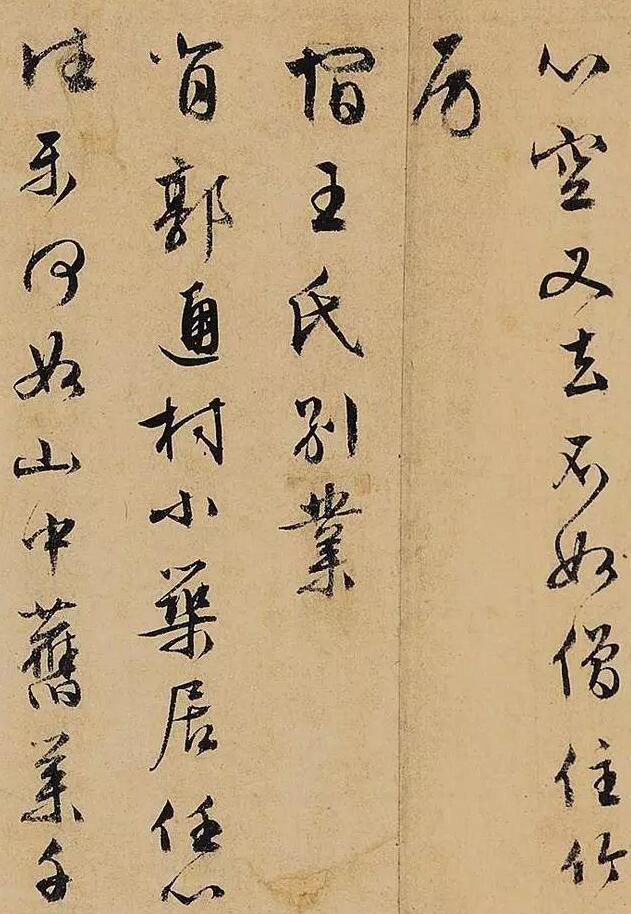 心空又去不如僧住竹
房
王氏别業
背郭通村小築居任心
何如山中舊業